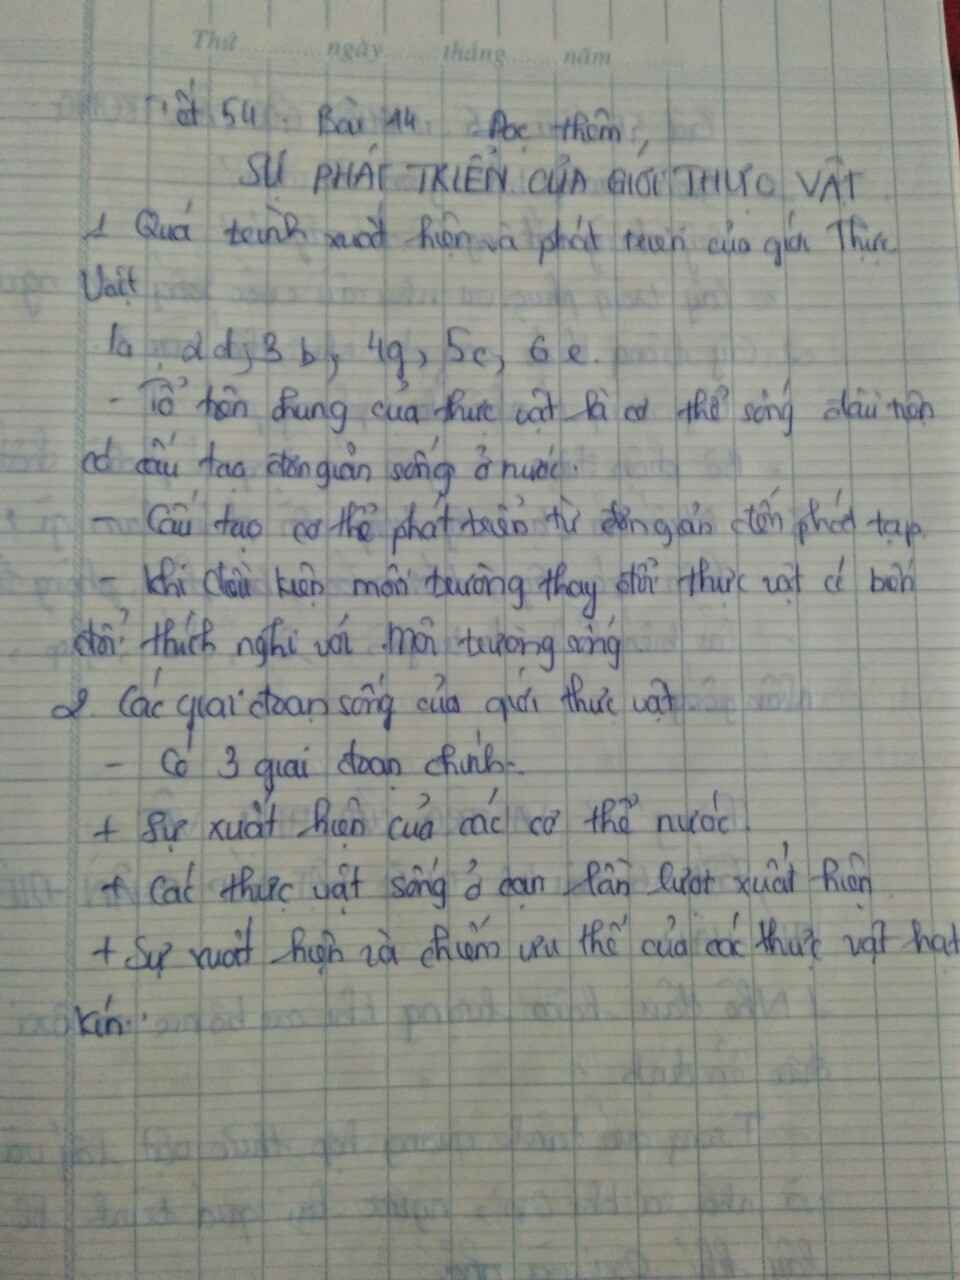 Thứ ngày tháng năm
Tiết 54. Bài 44. Đọc thêm,
SỰ PHÁT TRIỂN CỦA GIỚI THỰC VẬT
1 Quá trình xuất hiện và phát triển của giới Thực
Vật
1a, 2d, 3 b, 4g, 5c, 6 e.
- Tổ tiên chung của thực vật là cơ thể sống đầu tiên
có cấu tạo đơn giản sống ở nước.
- Cấu tạo cơ thể phát triển từ đơn giản đến phức tạp
- Khi điều kiện môi trường thay đổi thực vật có biến
đổi thích nghi với môi trường sống
2. Các giai đoạn sống của giới thực vật
- Có 3 giai đoạn chính.
+ Sự xuất hiện của các cơ thể nước
+ Các thực vật sống ở cạn lần lượt xuất hiện
+ Sự xuất hiện và chiếm ưu thế của các thực vật hạt
kín.